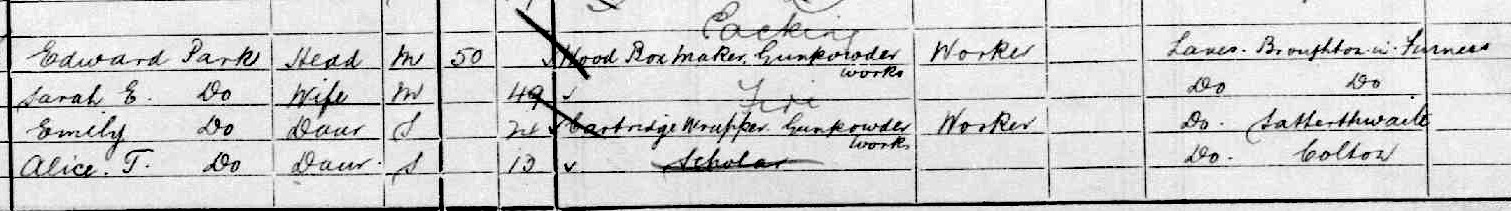 Packing
Edward Park Head M 50 Wood Box Maker, Gunpowder works Worker Lancs. Broughton in Furness
Sarah E. Do Wife M 49 Do Do
Emily Do Daur S Cartridge Wrapper Gunpowder works Worker Do. Satterthwaite
Alice. T. Do Daur. S 13 Scholar Do. Colton